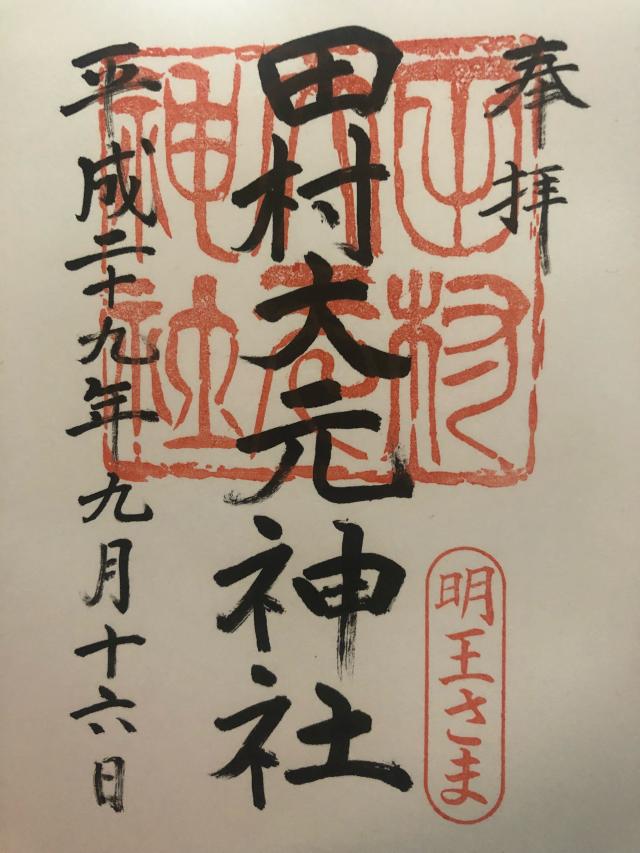 奉拝
田村大元神社
平成二十九年九月十六日
明王さま
田村大元神社